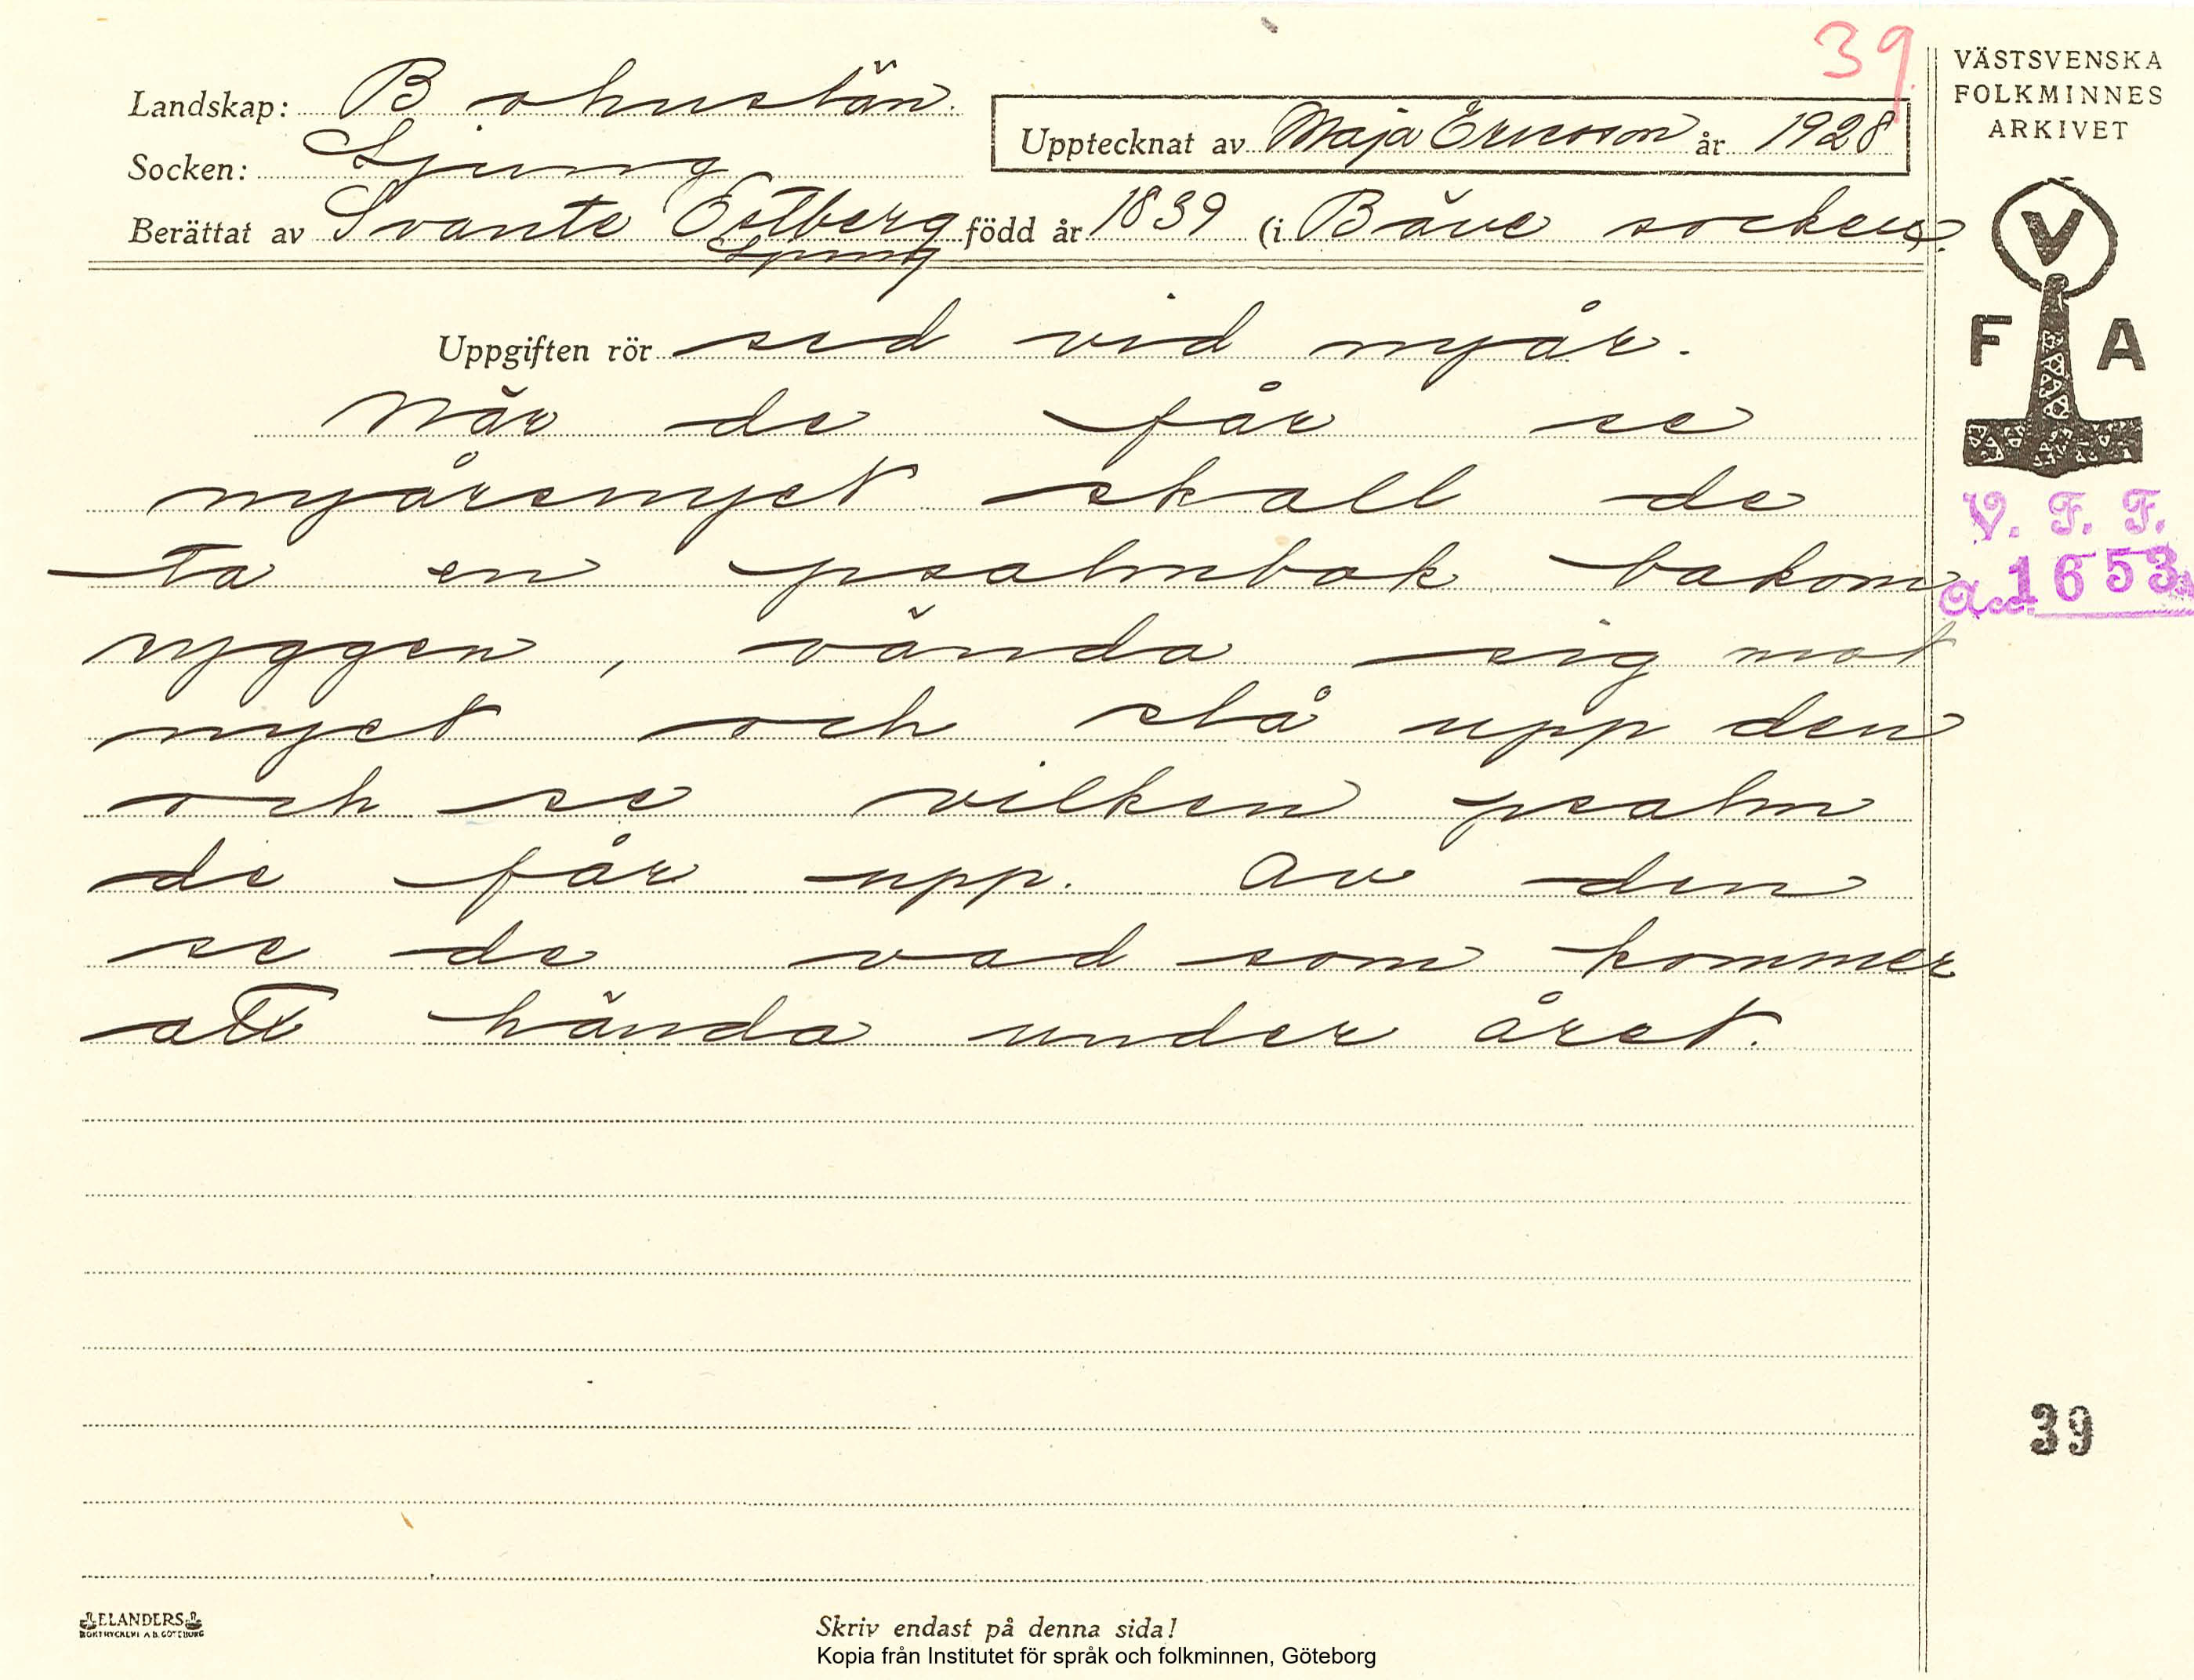 39.
VÄSTSVENSKA
FOLKMINNES
ARKIVET
Landskap: Bohuslän.
Socken: Ljung
Upptecknat av Maja Ericsson år 1928
Berättat av Svante Edberg född år 1839 (i Bäve socken).
Ljung
V
F A
Uppgiften rör sed vid nyår.
När de får se
nyårsnyet skall de
ta en psalmbok bakom
ryggen, vända sig mot
nyet och slå upp den
och se vilken psalm
de får upp. Av den
se de vad som kommer
att hända under året.
V. F. F.
Acc. 1653
39
ELANDERS
BOKTRYCKERI A.B. GÖTEBORG
Skriv endast på denna sida!
Kopia från Institutet för språk och folkminnen, Göteborg